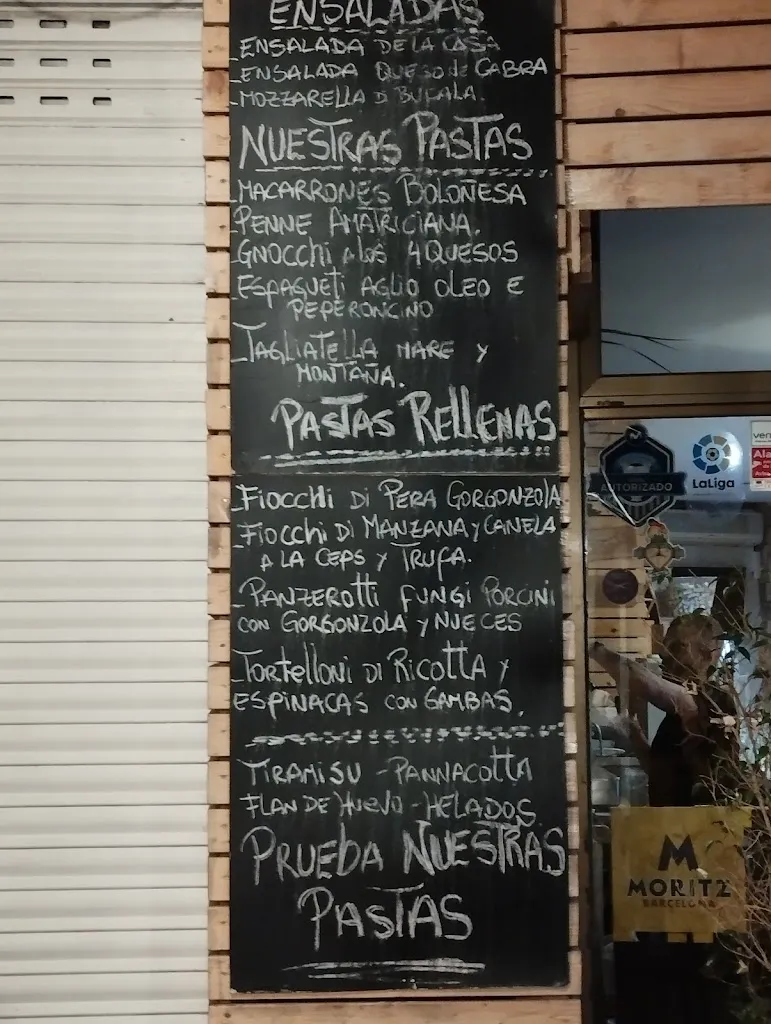 ENSALADAS
-ENSALADA DE LA CASA
-ENSALADA QUESO de CABRA
-MOZZARELLA D BUFALA.
NUESTRAS PASTAS
-MACARRONES BOLONESA
-PENNE AMATRICIANA.
-GNOCCHI a los 4 QUESOS
-ESPAGUETI AGLIO OLEO E
PEPERONCINO
-TAGLIATELLA MARE Y
MONTAÑA.
PASTAS RELLENAS
-FIOCCHI DI PERA GORGONZOLA
-FIOCCHI DI MANZANA y CANELA
A LA CEPS Y TRUFA.
-PANZEROTTI FUNGI PORCINI
CON GORGONZOLA Y NUECES
-TORTELLONI DI RICOTTA Y
ESPINACAS CON GAMBAS.
TIRAMISU - PANNACOTTA
FLAN DE HUEVO - HELADOS.
PRUEBA NUESTRAS
PASTAS
AUTORIZADO
LaLiga
MORITZ
BARCELONA